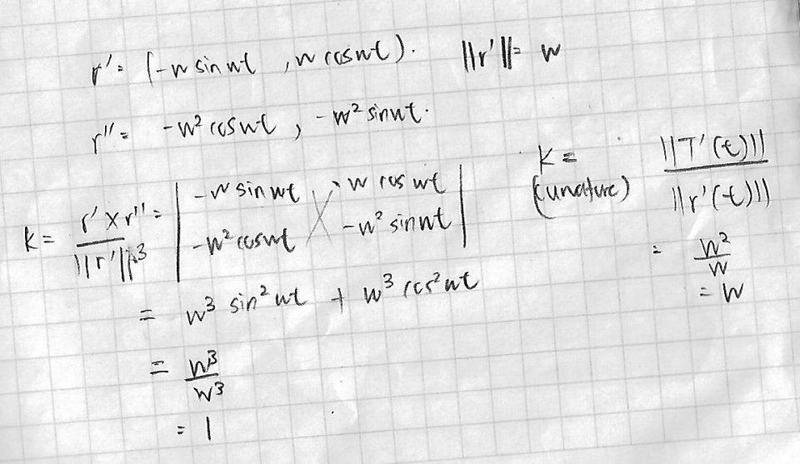 r' = (-w sin wt , w cos wt). ||r'|| = w
r'' = -w² cos wt , -w² sin wt.
k = r' × r'' / ||r'||³ = | -w sin wt w cos wt |
| -w² cos wt -w² sin wt |
= w³ sin² wt + w³ cos² wt
= w³ / w³
= 1
K = ||T'(t)|| / ||r'(t)||
(curvature)
= w² / w
= w